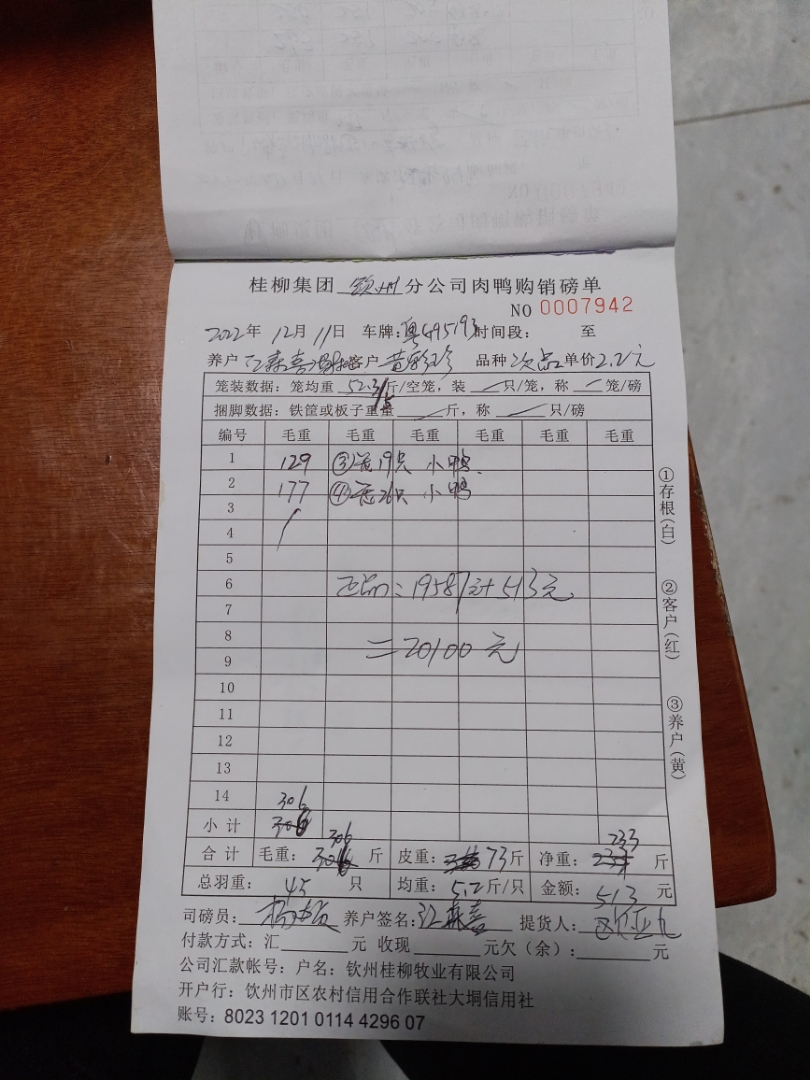 桂柳集团 钦州 分公司肉鸭购销磅单
NO 0007942
2022年 12月 11日 车牌: 时间段: 至
养户 江森喜 客户 黄彩珍 品种 次品 单价2.2元
笼装数据: 笼均重 52.3/5 斤/空笼, 装 / 只/笼, 称 / 笼/磅
捆脚数据: 铁筐或板子重量 / 斤, 称 / 只/磅
编号 毛重 毛重 毛重 毛重 毛重 毛重
1 129 ③笼19只 小鸭
2 177 ④笼26只 小鸭
3
4 /
5
6 19587元+513元
7
8 =20100元
9
10
11
12
13
14 306
小计
306 233
合计 毛重: 斤 皮重: 73斤 净重: 斤
总羽重: 45 只 均重: 5.2斤/只 金额: 513 元
司磅员: 养户签名: 江森喜 提货人:
付款方式: 汇 元 收现 元欠(余): 元
公司汇款帐号: 户名: 钦州桂柳牧业有限公司
开户行: 钦州市区农村信用合作联社大垌信用社
账号: 8023 1201 0114 4296 07
①存根(白)
②客户(红)
③养户(黄)